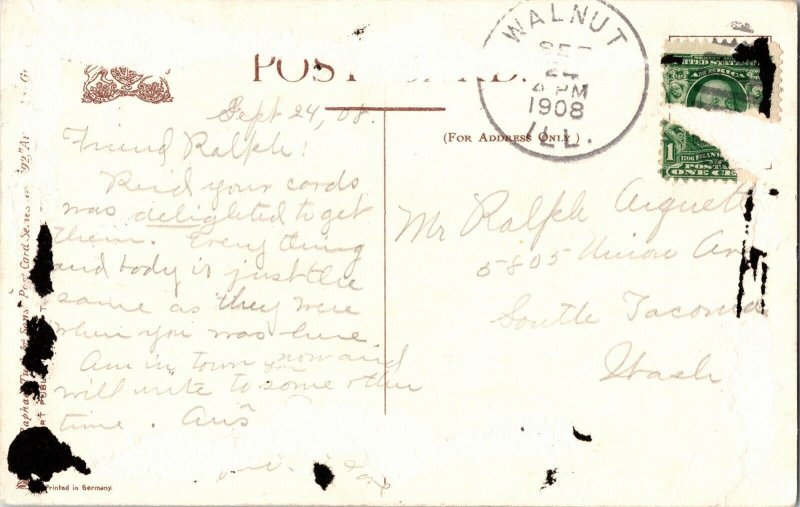 POST CARD.
WALNUT
SEP
24
4 PM
1908
ILL.
UNITED STATES
AMERICA
1
POSTA
ONE CE
(FOR ADDRESS ONLY.)
Sept 24, 08.
Friend Ralph!
Rec'd your cards
was delighted to get
them. Every thing
and body is just the
same as they were
when you was here.
Am in town now and
will write to you some other
time. Ans
Mr Ralph Arquett
5805 Union Av
South Tacoma
Wash
Printed in Germany.